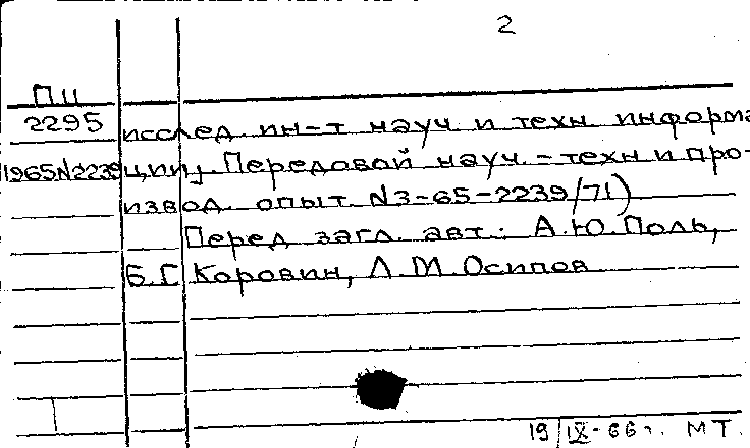 2
П11
2295
исслед. ин-т науч. и техн. информа
1965N2239 ции). Передовой науч.-техн и про-
извод. опыт. N3-65-2239/71)
Перед загл. авт.: А.Ю. Поль,
Б.Г. Коровин, Л.М. Осипов
19/IX-66г. МТ.